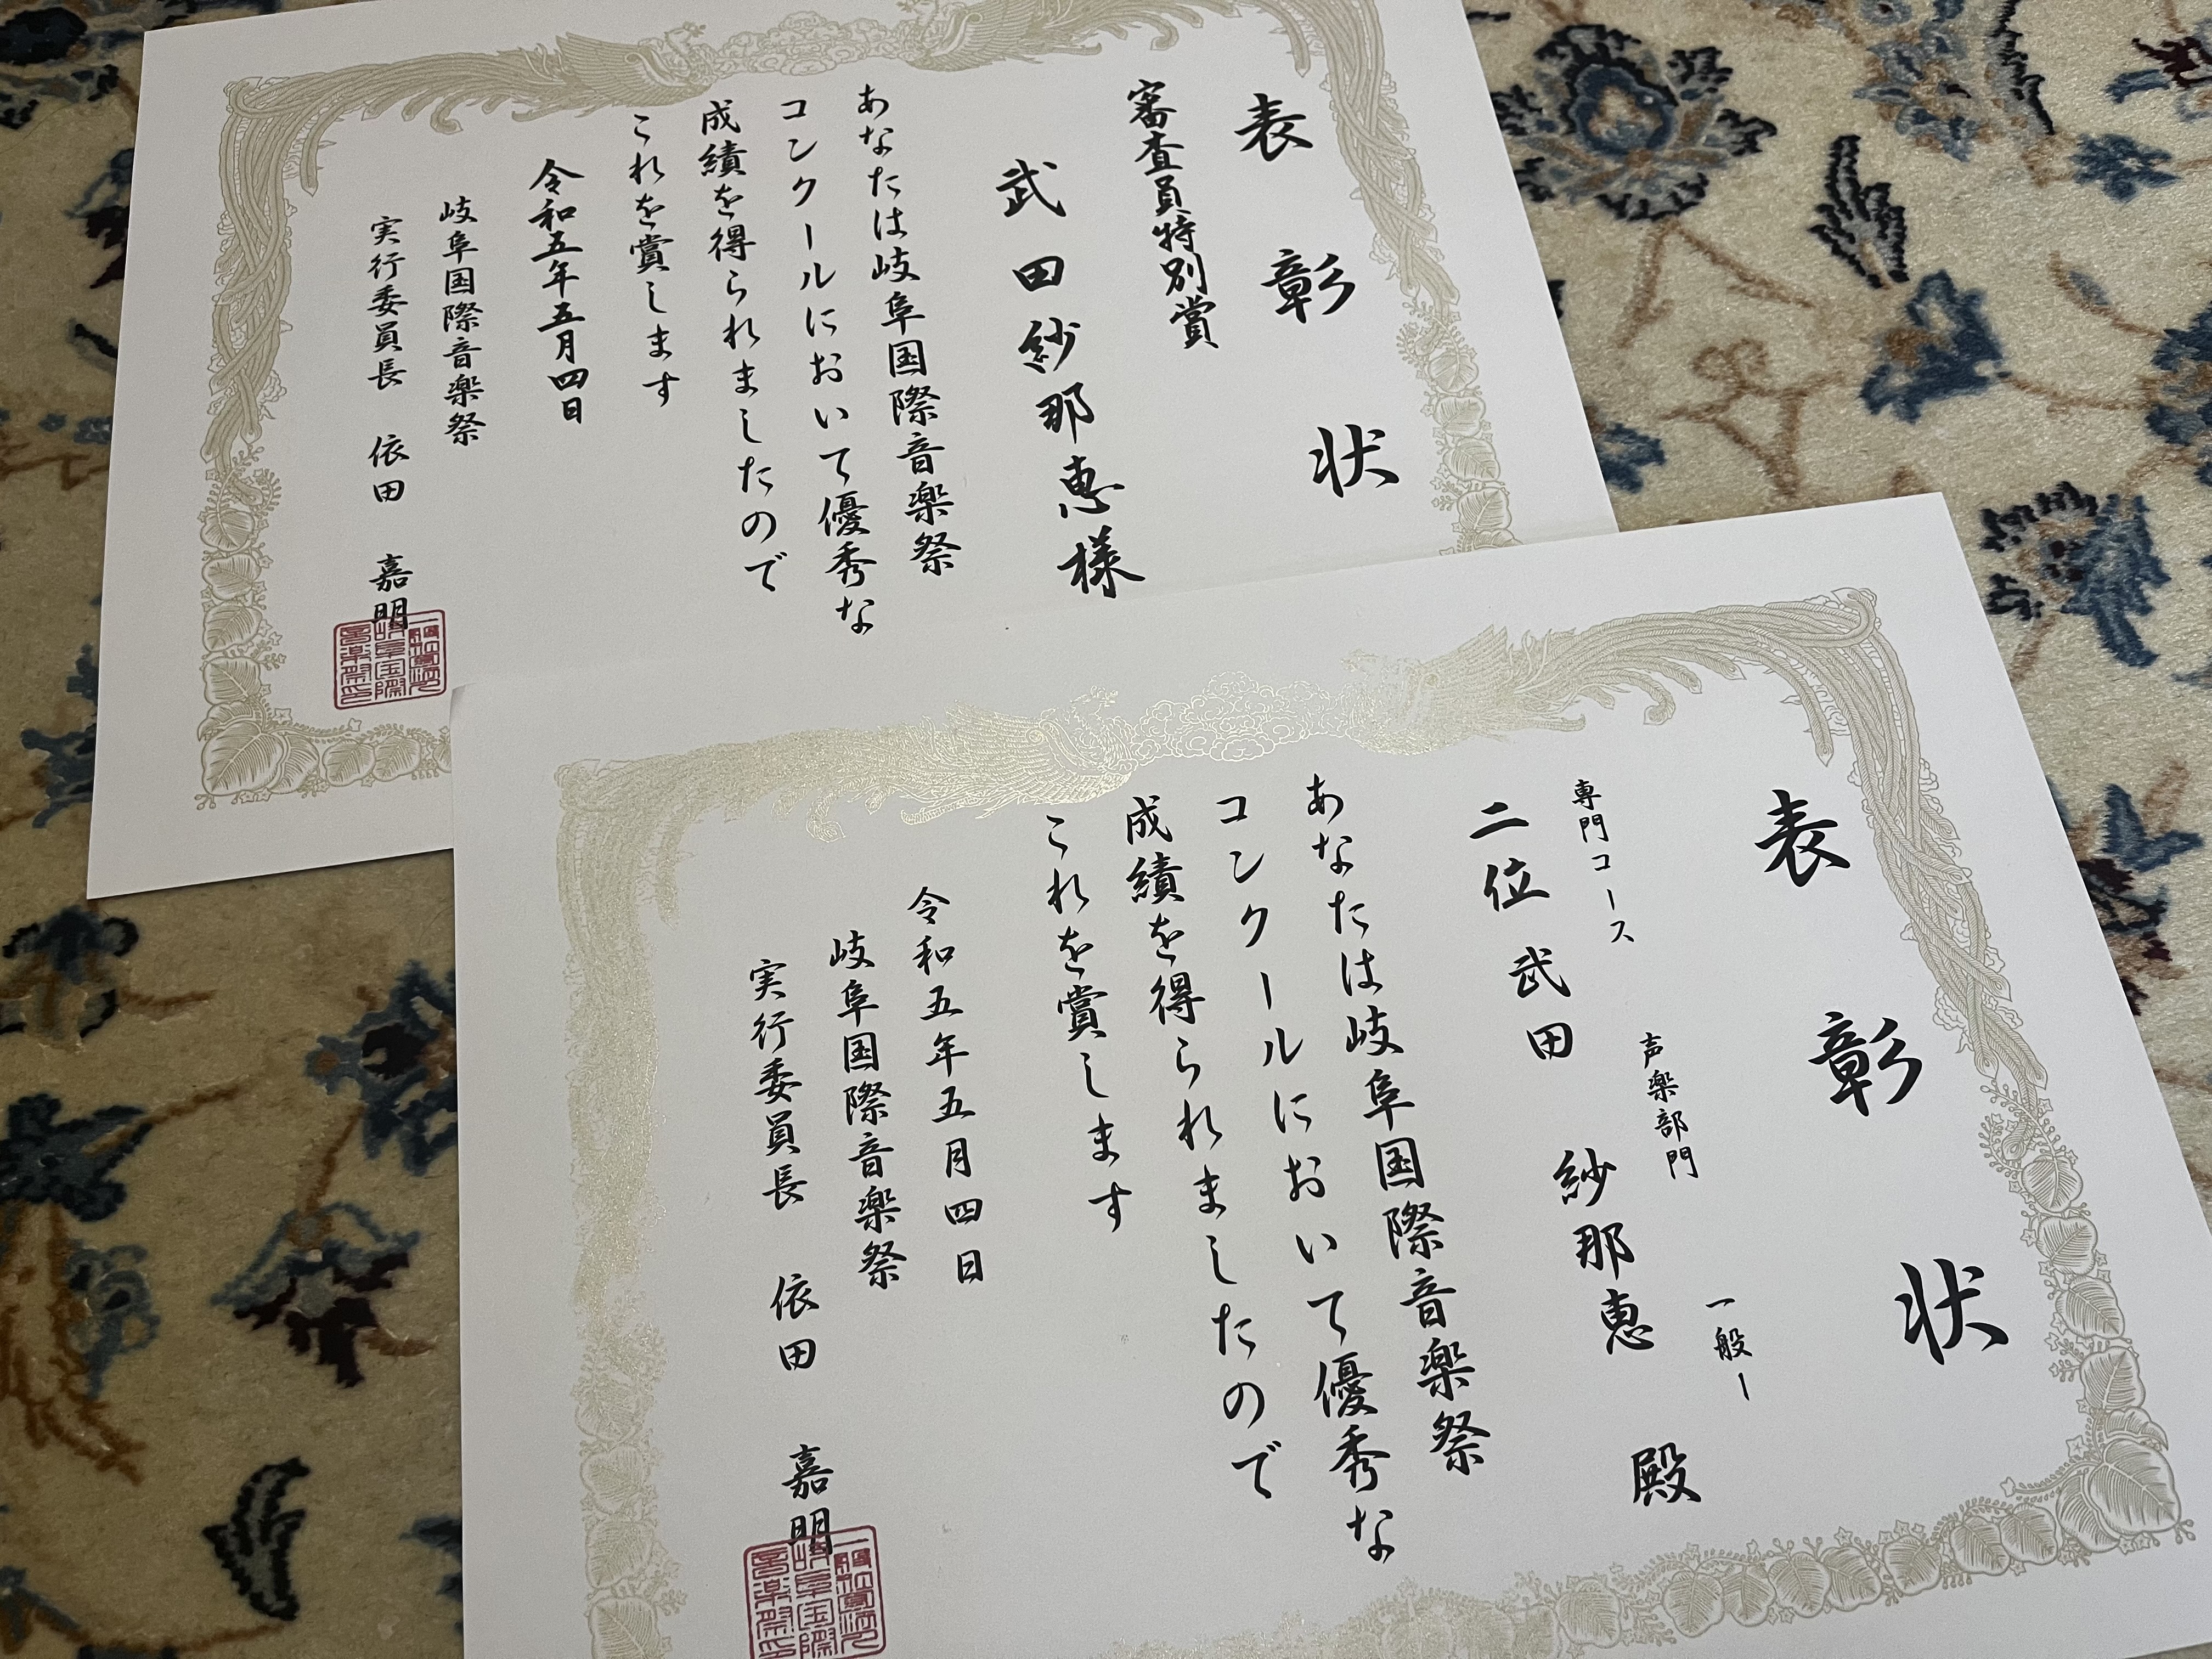 表彰状
審査員特別賞
武田紗那恵様
あなたは岐阜国際音楽祭
コンクールにおいて優秀な
成績を得られましたので
これを賞します
令和五年五月四日
岐阜国際音楽祭
実行委員長 依田 嘉明
表彰状
専門コース 声楽部門 一般ー
二位 武田 紗那恵 殿
あなたは岐阜国際音楽祭
コンクールにおいて優秀な
成績を得られましたので
これを賞します
令和五年五月四日
岐阜国際音楽祭
実行委員長 依田 嘉明